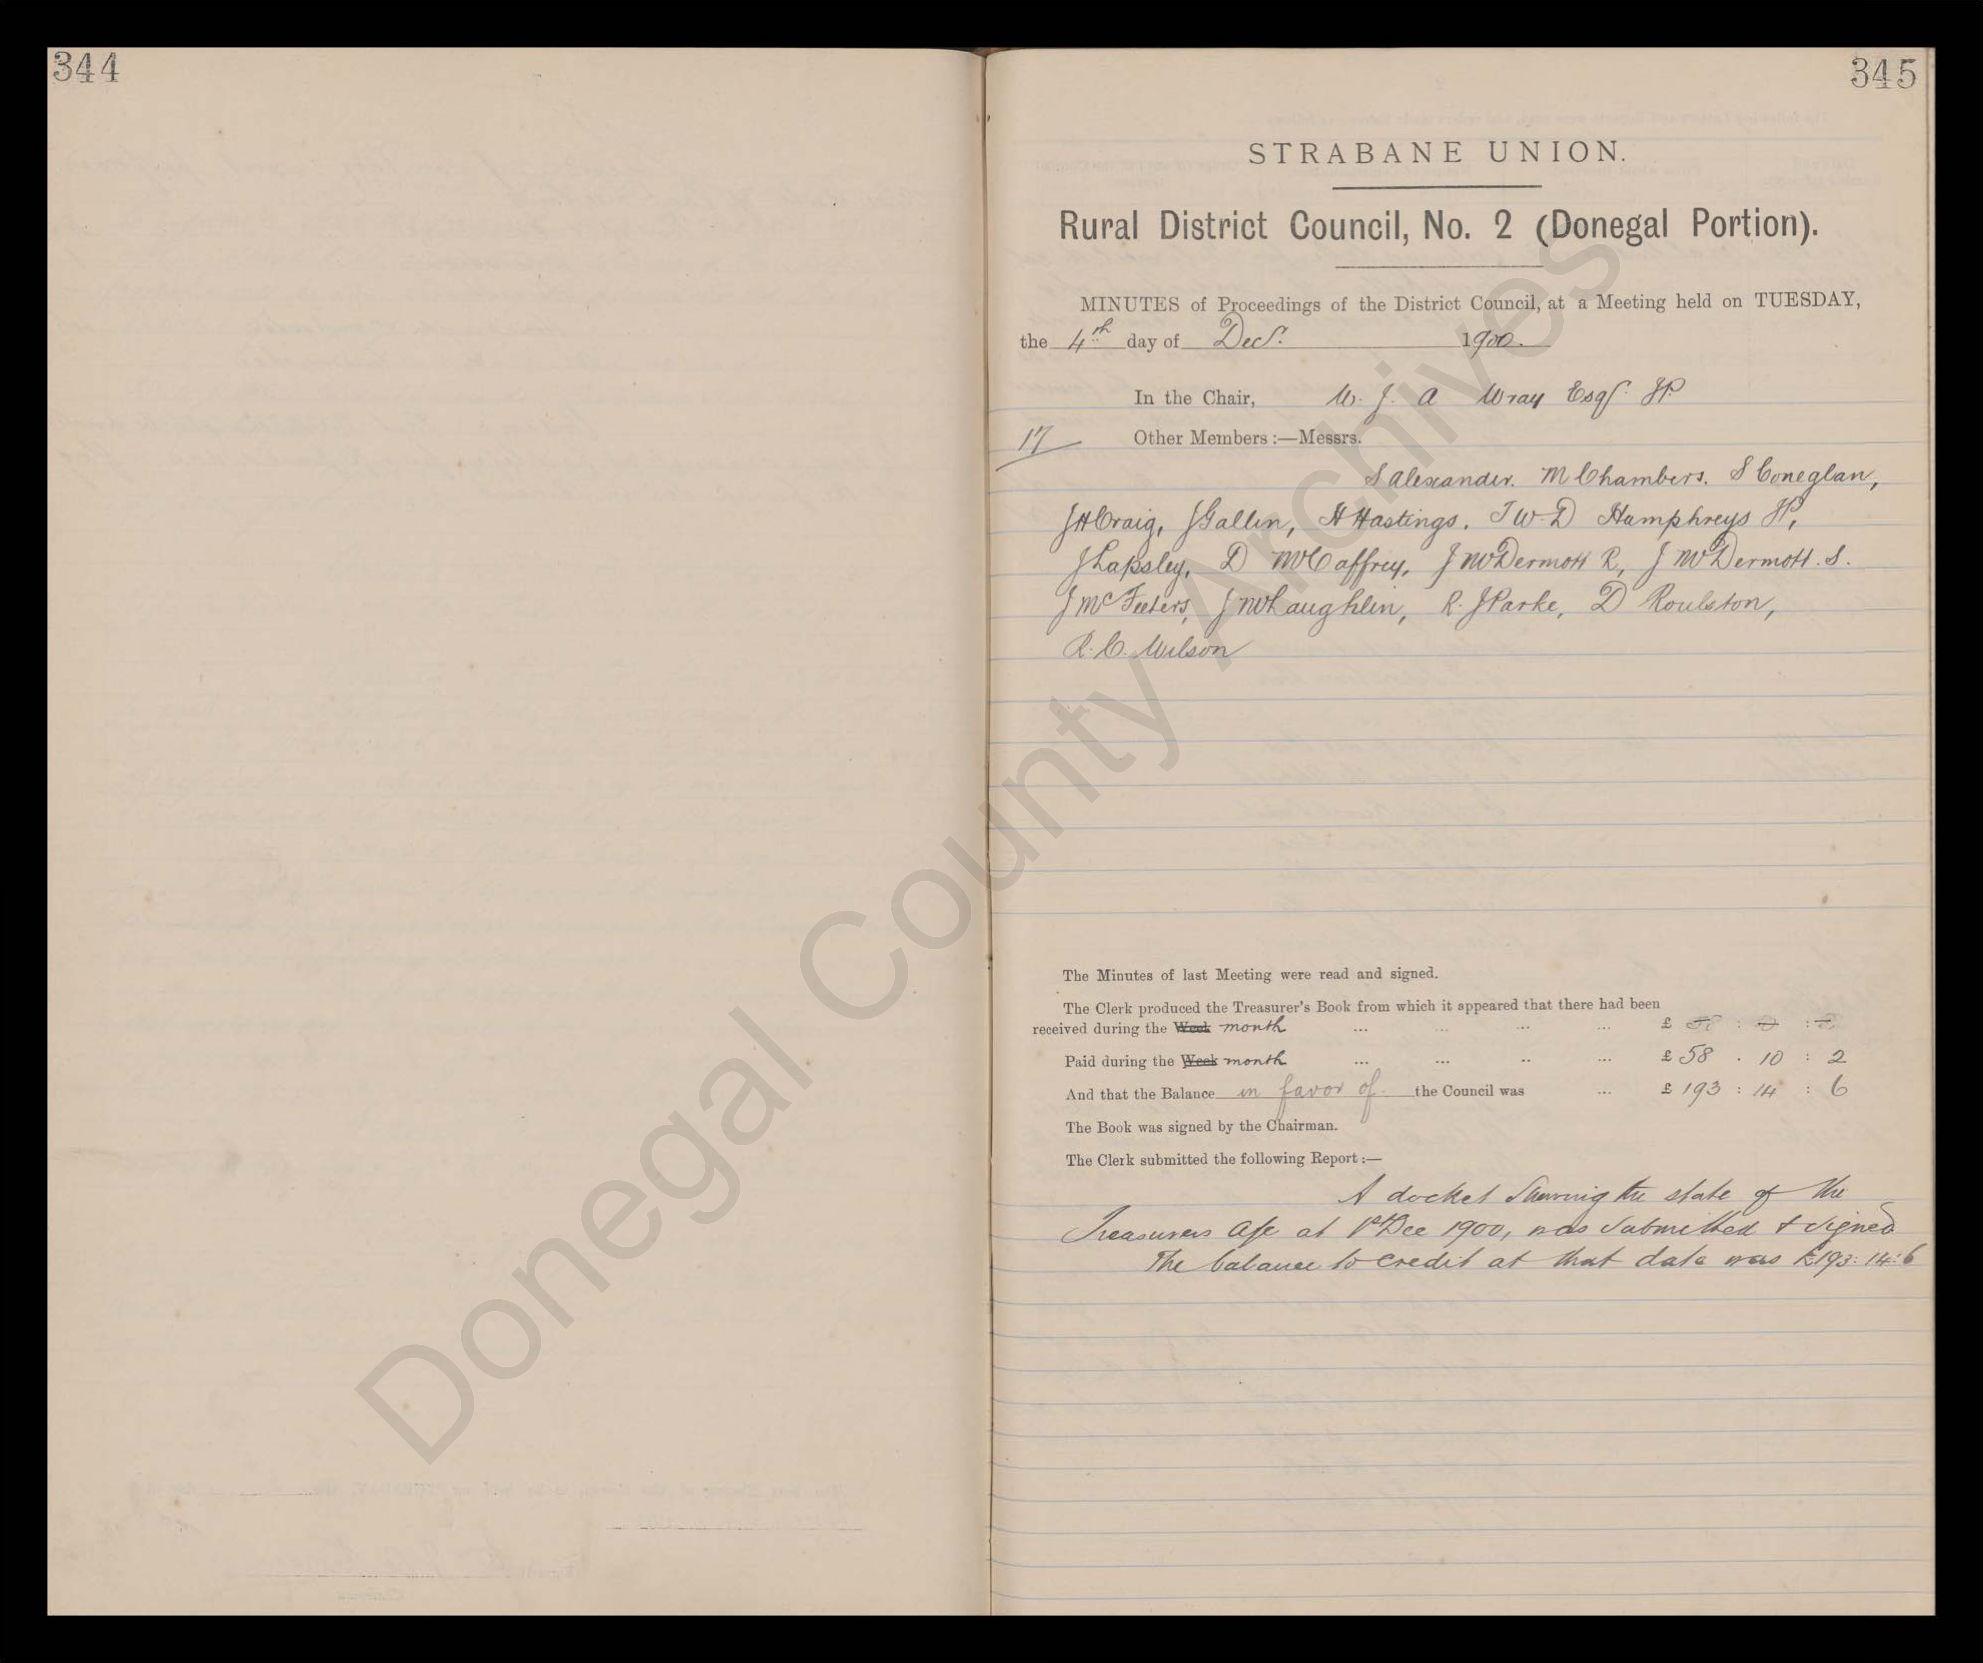 344
345
STRABANE UNION.
Rural District Council, No. 2 (Donegal Portion).
MINUTES of Proceedings of the District Council, at a Meeting held on TUESDAY,
the 4th day of Decr. 1900.
In the Chair, W. J. A Wray Esqr. JP
17 Other Members :—Messrs.
S Alexander. M Chambers. S Coneglan,
J H Craig, J Gallen, H Hastings. T W. D Humphreys JP,
J Lapsley, D McCaffrey, J McDermott R, J McDermott. S.
J McFeeters, J McLaughlin, R. J Parke, D Roulston,
R. C. Wilson
The Minutes of last Meeting were read and signed.
The Clerk produced the Treasurer's Book from which it appeared that there had been
received during the Week month ... ... ... ... £
Paid during the Week month ... ... .. ... £ 58 . 10 : 2
And that the Balance in favor of the Council was ... £ 193 : 14 : 6
The Book was signed by the Chairman.
The Clerk submitted the following Report :—
A docket Shewing the state of the
Treasurers a/c at 1st Dec 1900, was submitted & signed
The balance to credit at that date was £193:14:6
Donegal County Archives